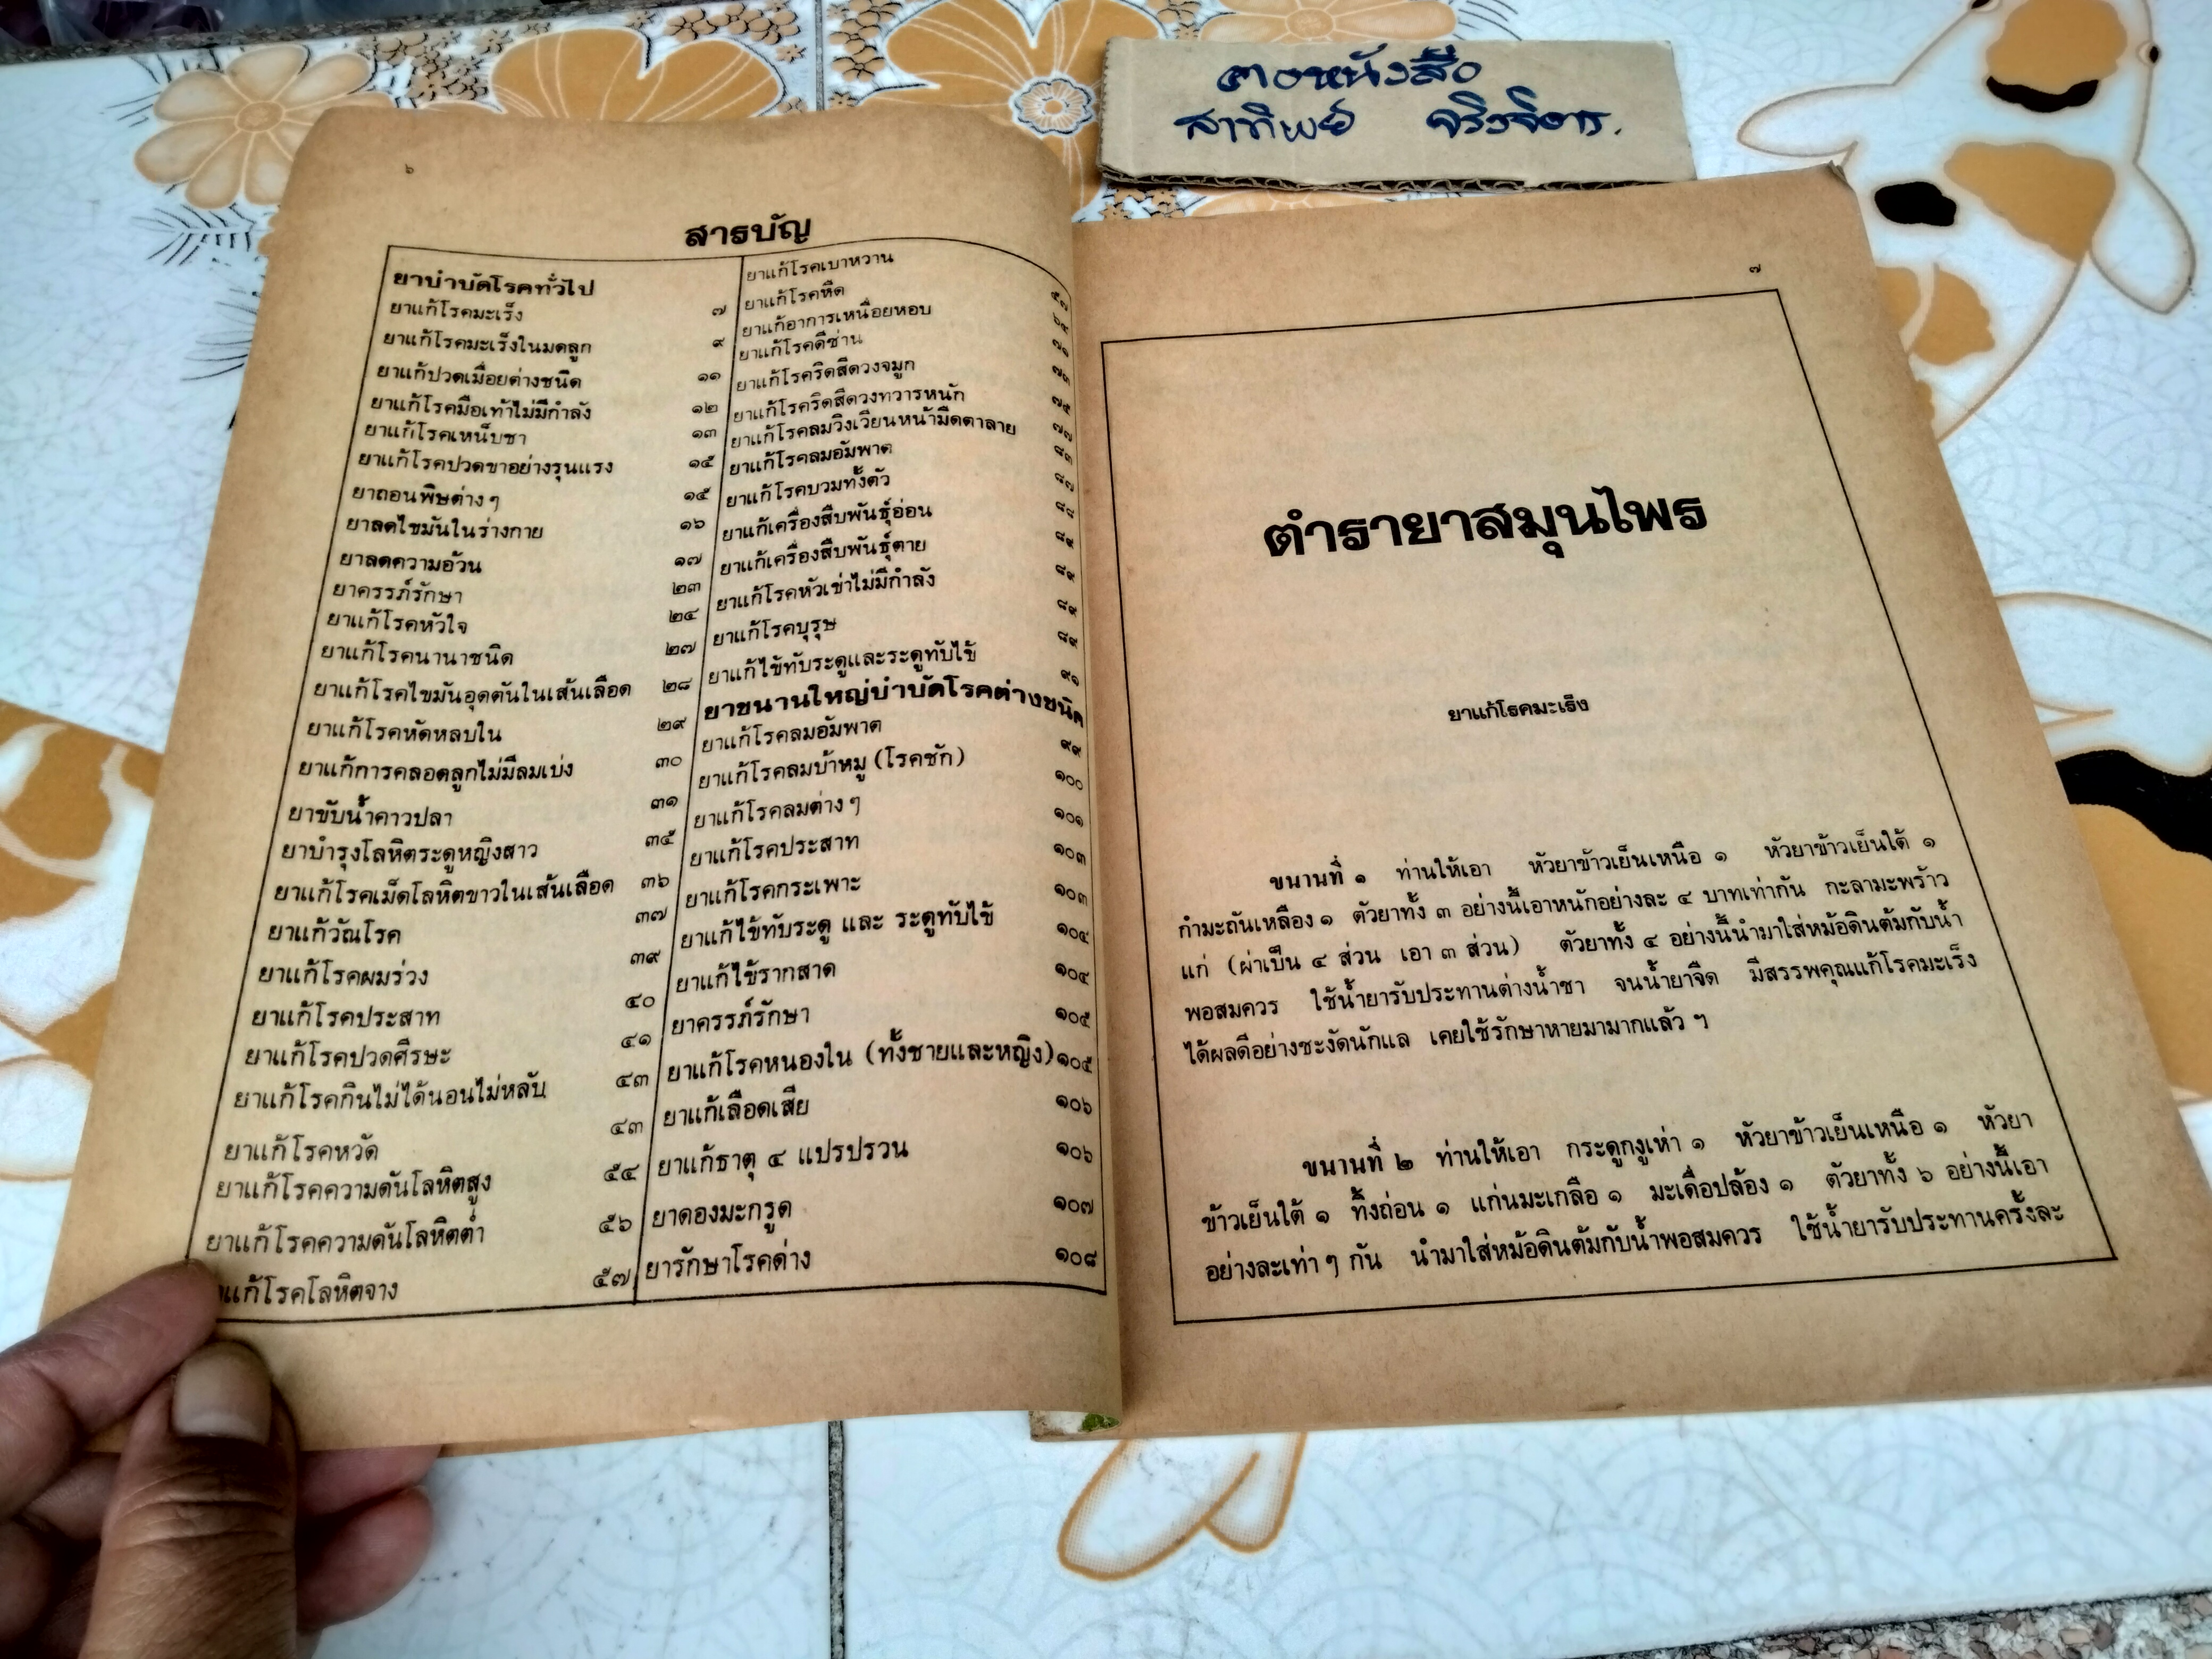 ๖
สารบัญ
ยาบำบัดโรคทั่วไป
ยาแก้โรคมะเร็ง ๗
ยาแก้โรคมะเร็งในมดลูก ๙
ยาแก้ปวดเมื่อยต่างชนิด ๑๑
ยาแก้โรคมือเท้าไม่มีกำลัง ๑๒
ยาแก้โรคเหน็บชา ๑๓
ยาแก้โรคปวดขาอย่างรุนแรง ๑๕
ยาถอนพิษต่าง ๆ ๑๕
ยาลดไขมันในร่างกาย ๑๖
ยาลดความอ้วน ๑๗
ยาครรภ์รักษา ๒๓
ยาแก้โรคหัวใจ ๒๔
ยาแก้โรคนานาชนิด ๒๗
ยาแก้โรคไขมันอุดตันในเส้นเลือด ๒๘
ยาแก้โรคหัดหลบใน ๒๙
ยาแก้การคลอดลูกไม่มีลมเบ่ง ๓๐
ยาขับน้ำคาวปลา ๓๑
ยาบำรุงโลหิตระดูหญิงสาว ๓๕
ยาแก้โรคเม็ดโลหิตขาวในเส้นเลือด ๓๖
ยาแก้วัณโรค ๓๗
ยาแก้โรคผมร่วง ๓๙
ยาแก้โรคประสาท ๔๐
ยาแก้โรคปวดศีรษะ ๔๑
ยาแก้โรคกินไม่ได้นอนไม่หลับ ๔๓
ยาแก้โรคหวัด ๔๓
ยาแก้โรคความดันโลหิตสูง ๕๔
ยาแก้โรคความดันโลหิตต่ำ ๕๖
ยาแก้โรคโลหิตจาง ๕๗
ยาแก้โรคเบาหวาน ๕๗
ยาแก้โรคหืด ๖๙
ยาแก้อาการเหนื่อยหอบ ๗๑
ยาแก้โรคดีซ่าน ๗๓
ยาแก้โรคริดสีดวงจมูก ๗๕
ยาแก้โรคริดสีดวงทวารหนัก ๗๗
ยาแก้โรคลมวิงเวียนหน้ามืดตาลาย ๘๓
ยาแก้โรคลมอัมพาต ๘๗
ยาแก้โรคบวมทั้งตัว ๘๘
ยาแก้เครื่องสืบพันธุ์อ่อน ๘๙
ยาแก้เครื่องสืบพันธุ์ตาย ๘๙
ยาแก้โรคหัวเข่าไม่มีกำลัง ๘๙
ยาแก้โรคบุรุษ ๘๙
ยาแก้ไข้ทับระดูและระดูทับไข้ ๙๑
ยาขนานใหญ่บำบัดโรคต่างชนิด
ยาแก้โรคลมอัมพาต ๙๙
ยาแก้โรคลมบ้าหมู (โรคชัก) ๑๐๐
ยาแก้โรคลมต่าง ๆ ๑๐๑
ยาแก้โรคประสาท ๑๐๓
ยาแก้โรคกระเพาะ ๑๐๓
ยาแก้ไข้ทับระดู และ ระดูทับไข้ ๑๐๔
ยาแก้ไข้รากสาด ๑๐๔
ยาครรภ์รักษา ๑๐๕
ยาแก้โรคหนองใน (ทั้งชายและหญิง) ๑๐๕
ยาแก้เลือดเสีย ๑๐๖
ยาแก้ธาตุ ๔ แปรปรวน ๑๐๖
ยาดองมะกรูด ๑๐๗
ยารักษาโรคด่าง ๑๐๘
หนังสือ
สาทิพย์
๗
ตำรายาสมุนไพร
ยาแก้โรคมะเร็ง
ขนานที่ ๑ ท่านให้เอา หัวยาข้าวเย็นเหนือ ๑ หัวยาข้าวเย็นใต้ ๑
กำมะถันเหลือง ๑ ตัวยาทั้ง ๓ อย่างนี้เอาหนักอย่างละ ๔ บาทเท่ากัน กะลามะพร้าว
แก่ (ผ่าเป็น ๔ ส่วน เอา ๓ ส่วน) ตัวยาทั้ง ๔ อย่างนี้นำมาใส่หม้อดินต้มกับน้ำ
พอสมควร ใช้น้ำยารับประทานต่างน้ำชา จนน้ำยาจืด มีสรรพคุณแก้โรคมะเร็ง
ได้ผลดีอย่างชะงัดนักแล เคยใช้รักษาหายมามากแล้ว ฯ
ขนานที่ ๒ ท่านให้เอา กระดูกงูเห่า ๑ หัวยาข้าวเย็นเหนือ ๑ หัวยา
ข้าวเย็นใต้ ๑ ทิ้งถ่อน ๑ แก่นมะเกลือ ๑ มะเดื่อปล้อง ๑ ตัวยาทั้ง ๖ อย่างนี้เอา
อย่างละเท่า ๆ กัน นำมาใส่หม้อดินต้มกับน้ำพอสมควร ใช้น้ำยารับประทานครั้งละ